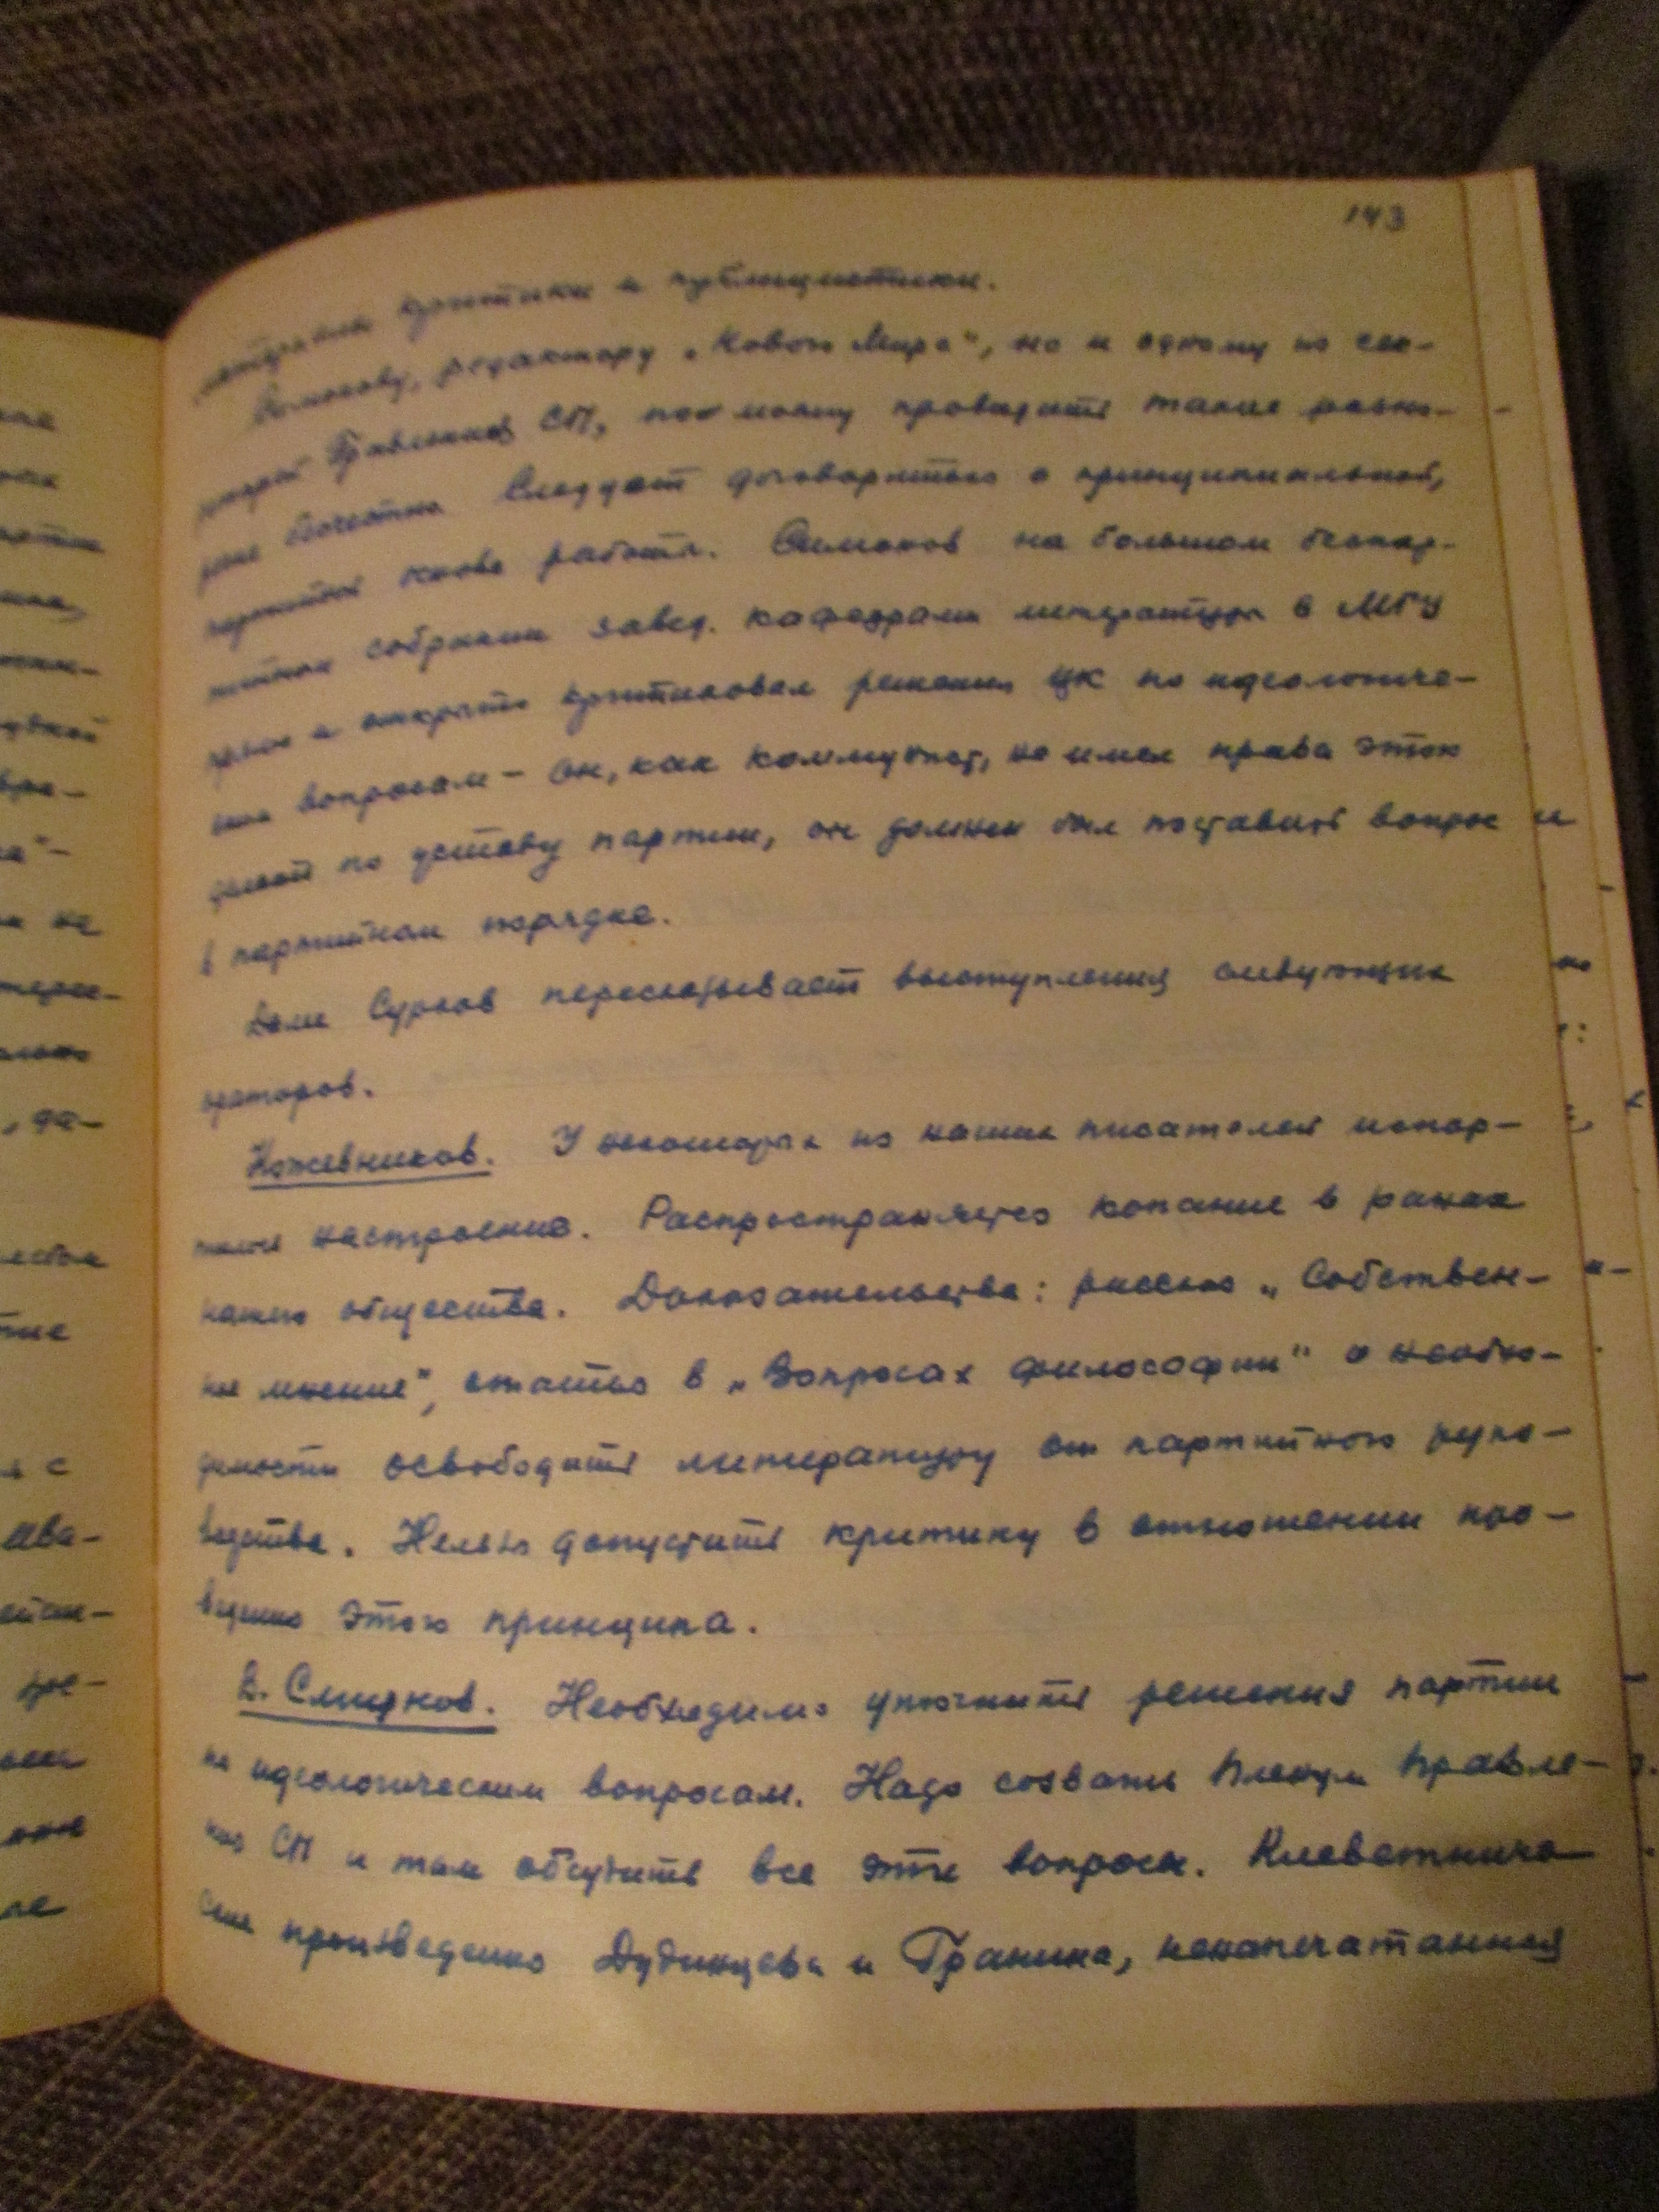 143
критики и публицистики.
Симонову, редактору „Нового Мира", но и одному из сек-
Правления СП, проводить такие
Следует договориться о принципиальной,
партийной работы. Симонов на большом беспар-
тийном собрании завед. кафедрами литературы в МГУ
и открыто критиковал решения ЦК по идеологиче-
ским вопросам – он, как коммунист, не имел права этого
делать по уставу партии, он должен был поставить вопрос
в партийном порядке.
Далее Сурков пересказывает выступления следующих
ораторов.
Кожевников. У некоторых из наших писателей испор-
тилось настроение. Распространяется копание в ранах
нашего общества. Доказательства: рассказ „Собствен-
ное мнение", статья в „Вопросах философии" о необхо-
димости освободить литературу от партийного руко-
водства. Нельзя допустить критику в отношении
этого принципа.
В. Смирнов. Необходимо уточнить решения партии
по идеологическим вопросам. Надо созвать Пленум Правле-
ния СП и там обсудить все эти вопросы. Клеветниче-
ские произведения Дудинцева и Гранина, ненапечатанная